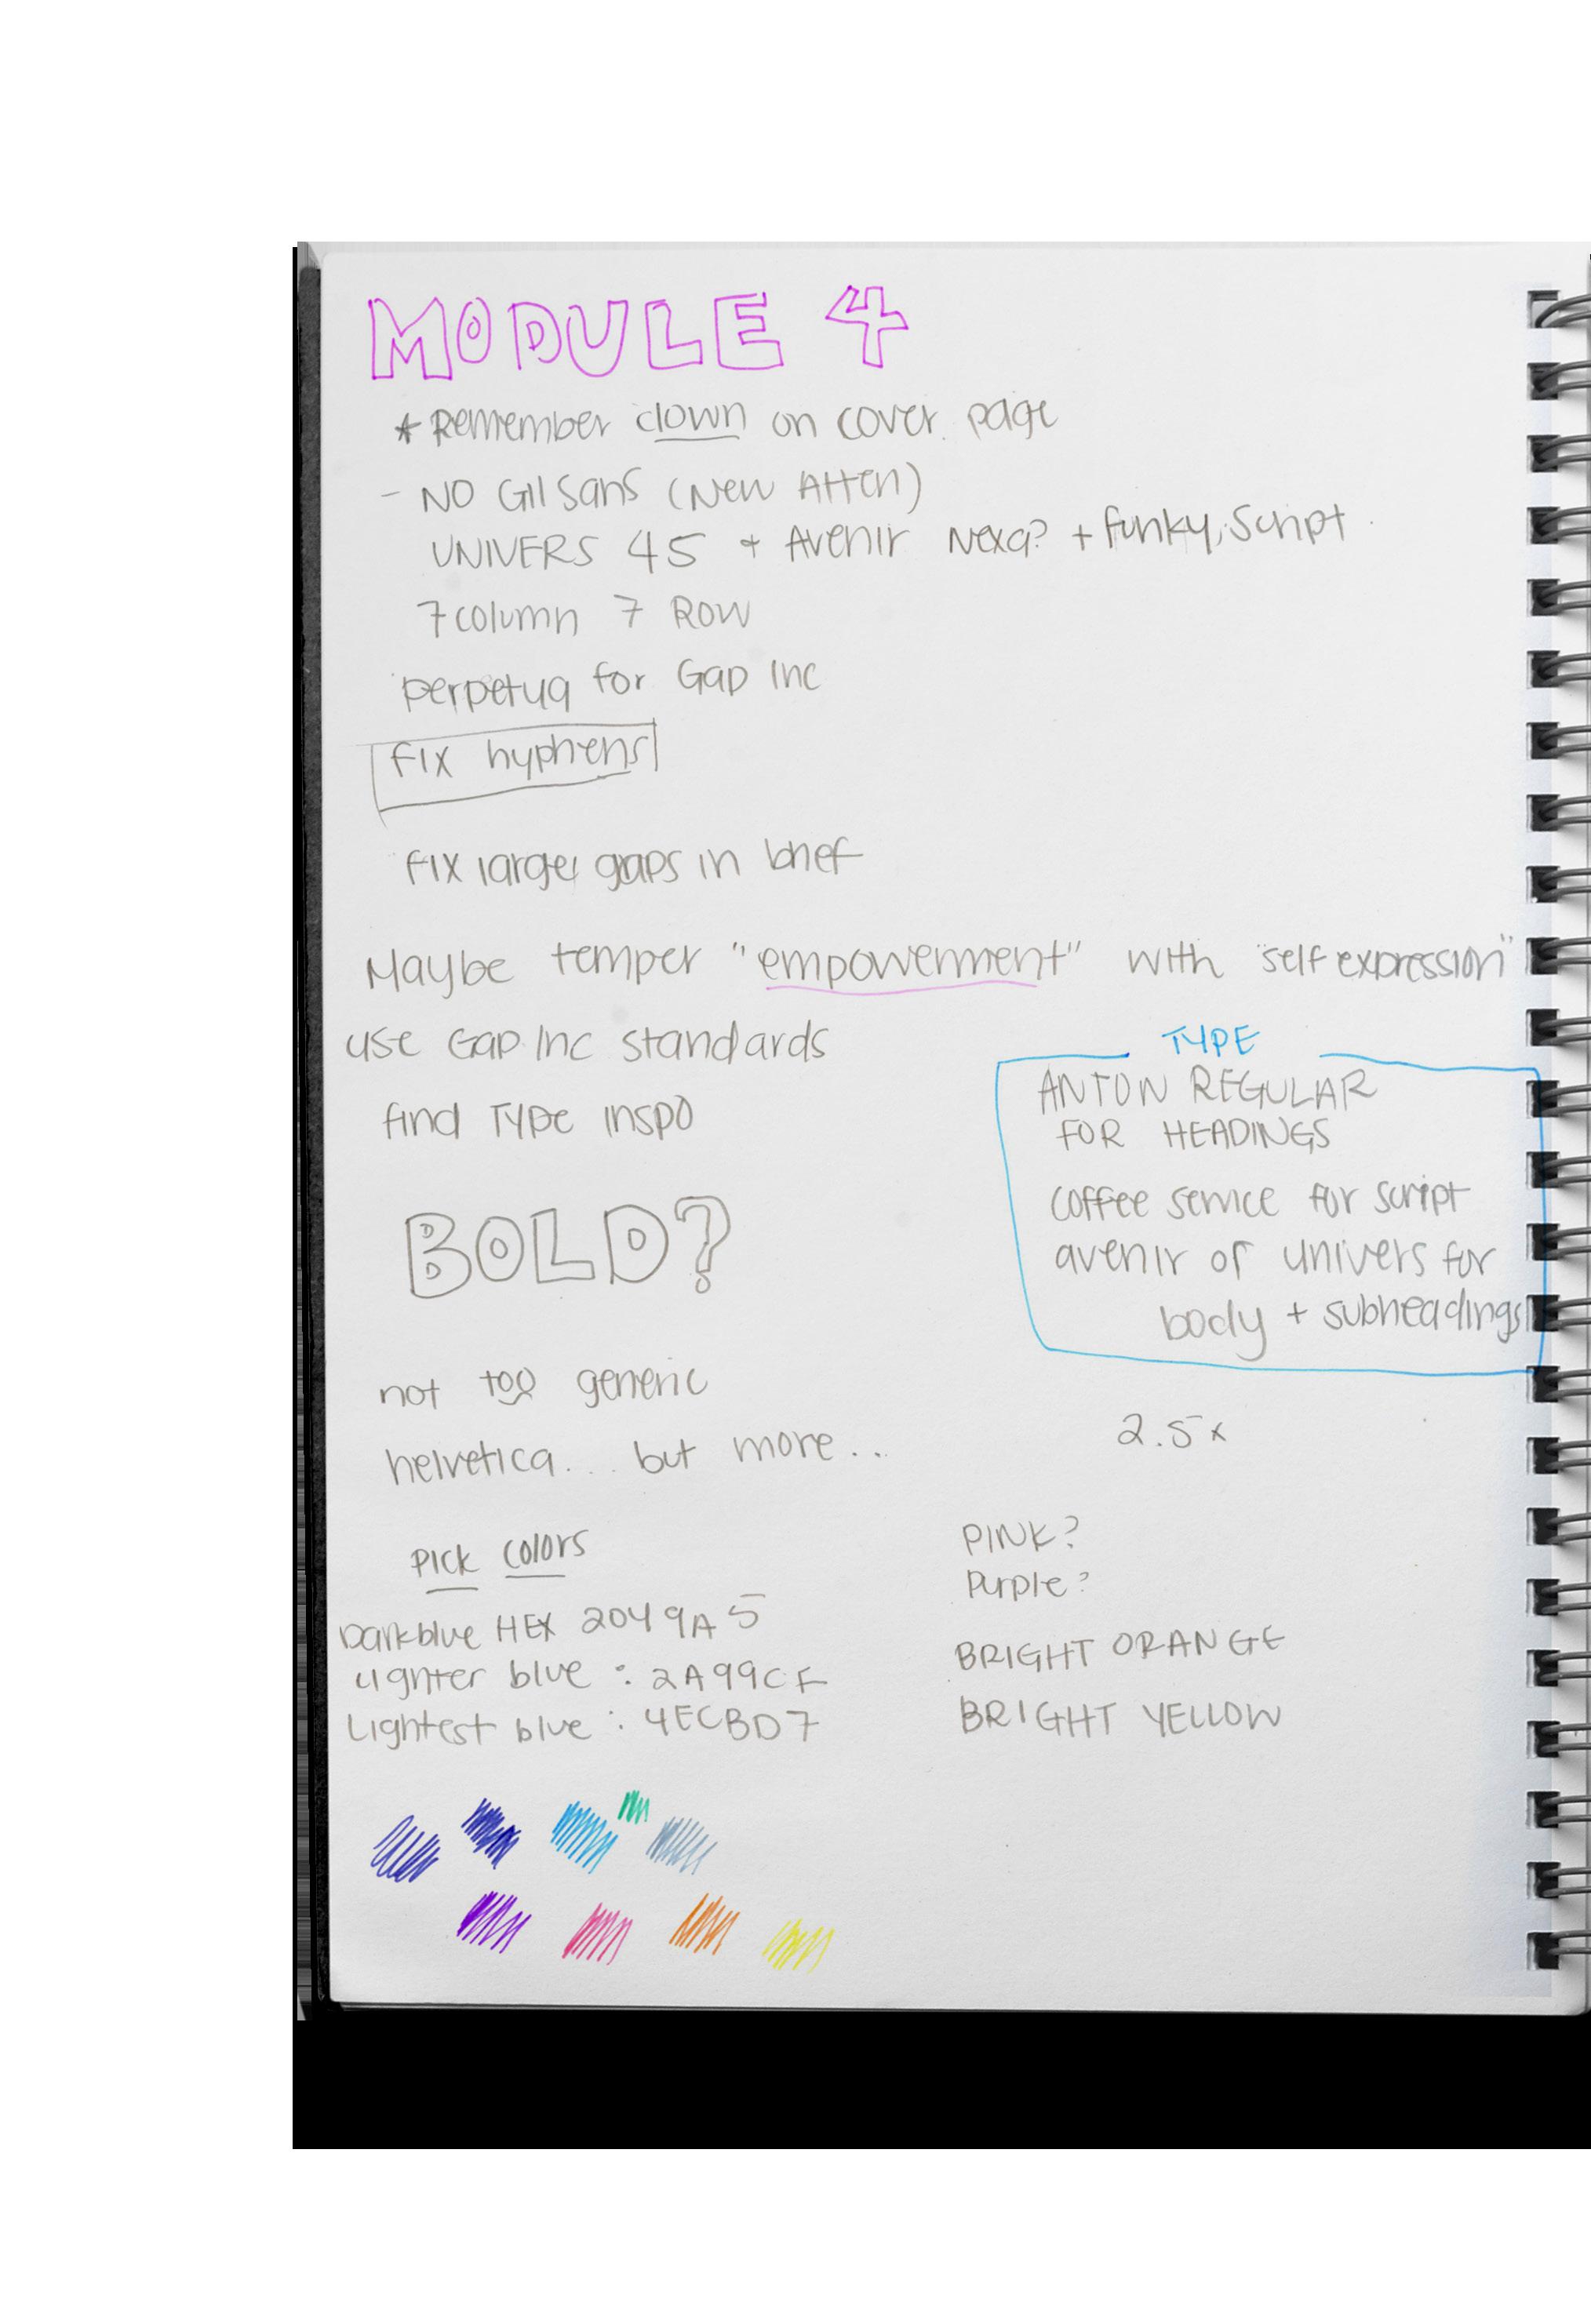 MODULE 4
* Remember clown on cover page
- NO Gil Sans (New Atten)
UNIVERS 45 + Avenir Nexa? + funky, Script
7 column 7 Row
perpetua for Gap Inc
fix hyphens
fix larger gaps in brief
Maybe temper "empowerment" with "self expression"
use Gap Inc standards
find Type inspo
BOLD?
not too generic
helvetica... but more..
TYPE
ANTON REGULAR
FOR HEADINGS
coffee service for script
avenir or univers for
body + subheadings
2.5x
Pick colors
Darkblue HEX 2049A5
Lighter blue : 2A99CF
Lightest blue : 4ECBD7
PINK?
Purple?
BRIGHT ORANGE
BRIGHT YELLOW